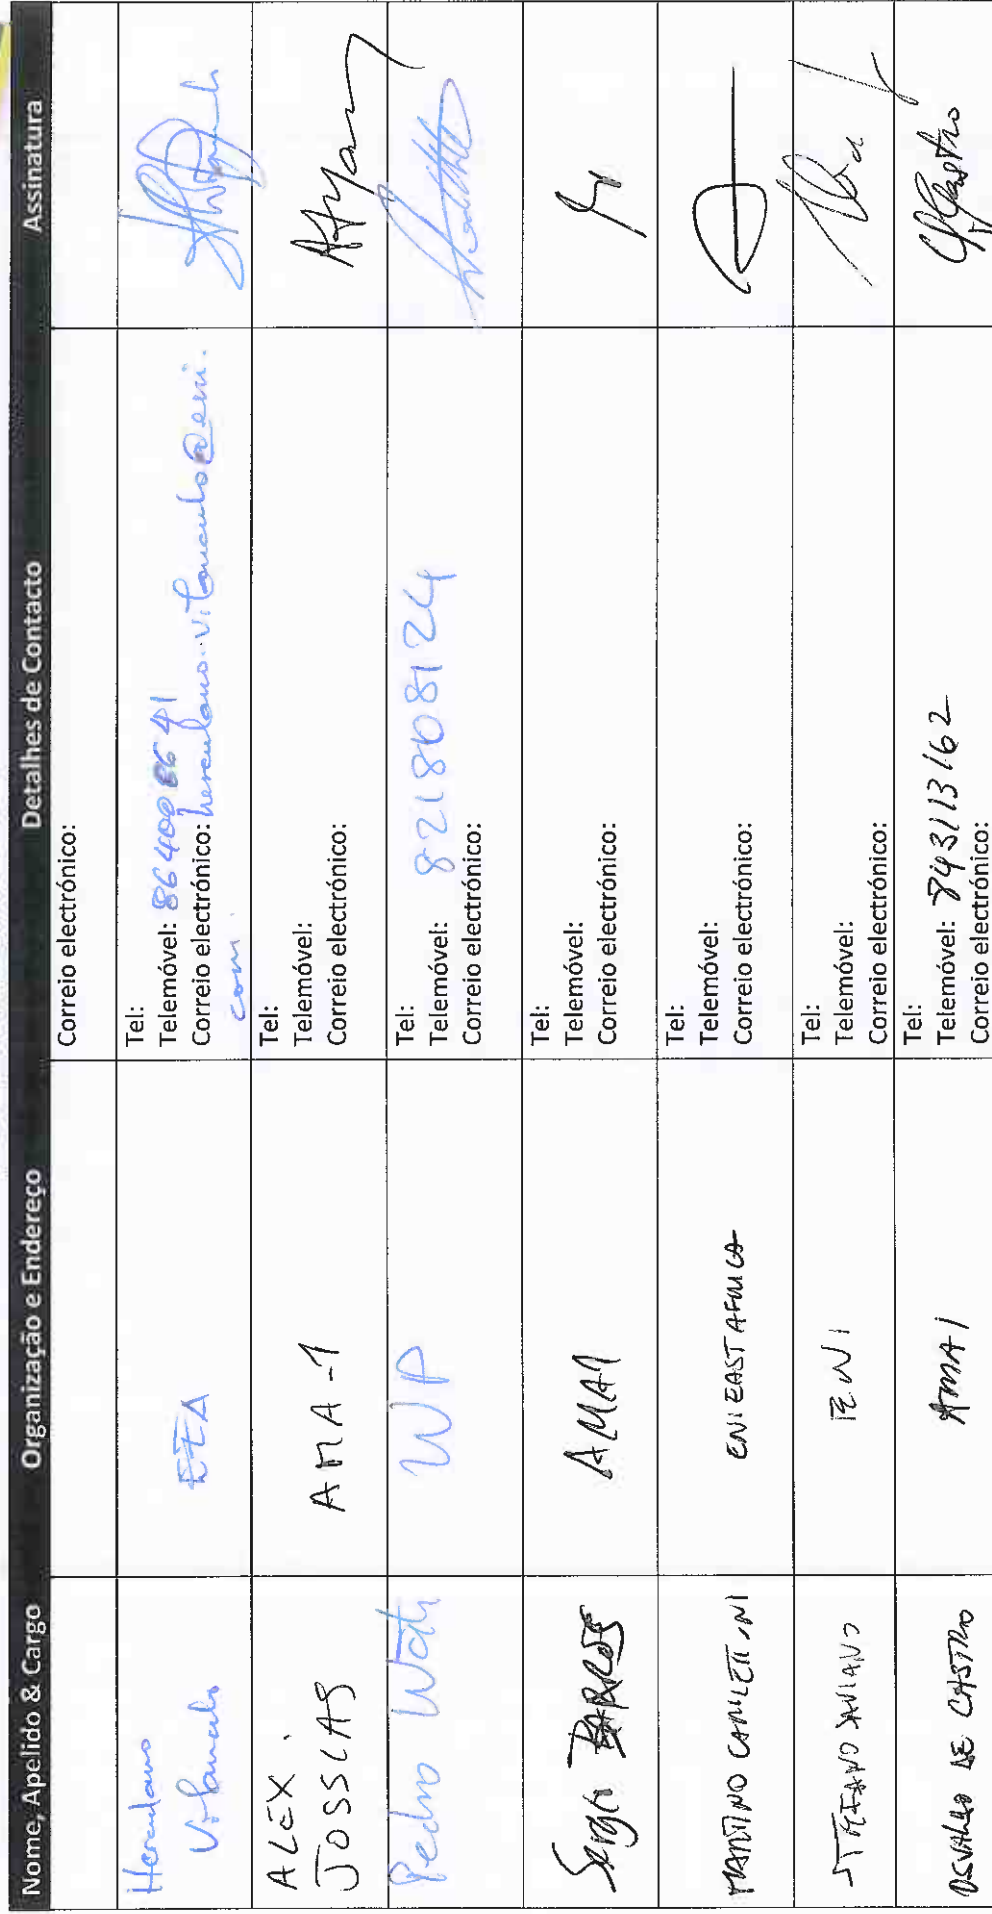 Nome, Apelido & Cargo Organização e Endereço Detalhes de Contacto Assinatura
Correio electrónico:
Herculano
Vilanculo
EEA
Tel:
Telemóvel: 864000641
Correio electrónico: herculano.vilanculo@eni.
com
ALEX
JOSSIAS
AMA-1
Tel:
Telemóvel:
Correio electrónico:
Pedro
WP
Tel:
Telemóvel: 821808124
Correio electrónico:
Sergio BARROS
AMA1
Tel:
Telemóvel:
Correio electrónico:
ENI EAST AFRICA
Tel:
Telemóvel:
Correio electrónico:
STEFANO SAVIANO
ENI
Tel:
Telemóvel:
Correio electrónico:
OSVALDO DE CASTRO
AMA1
Tel:
Telemóvel: 843113162
Correio electrónico: